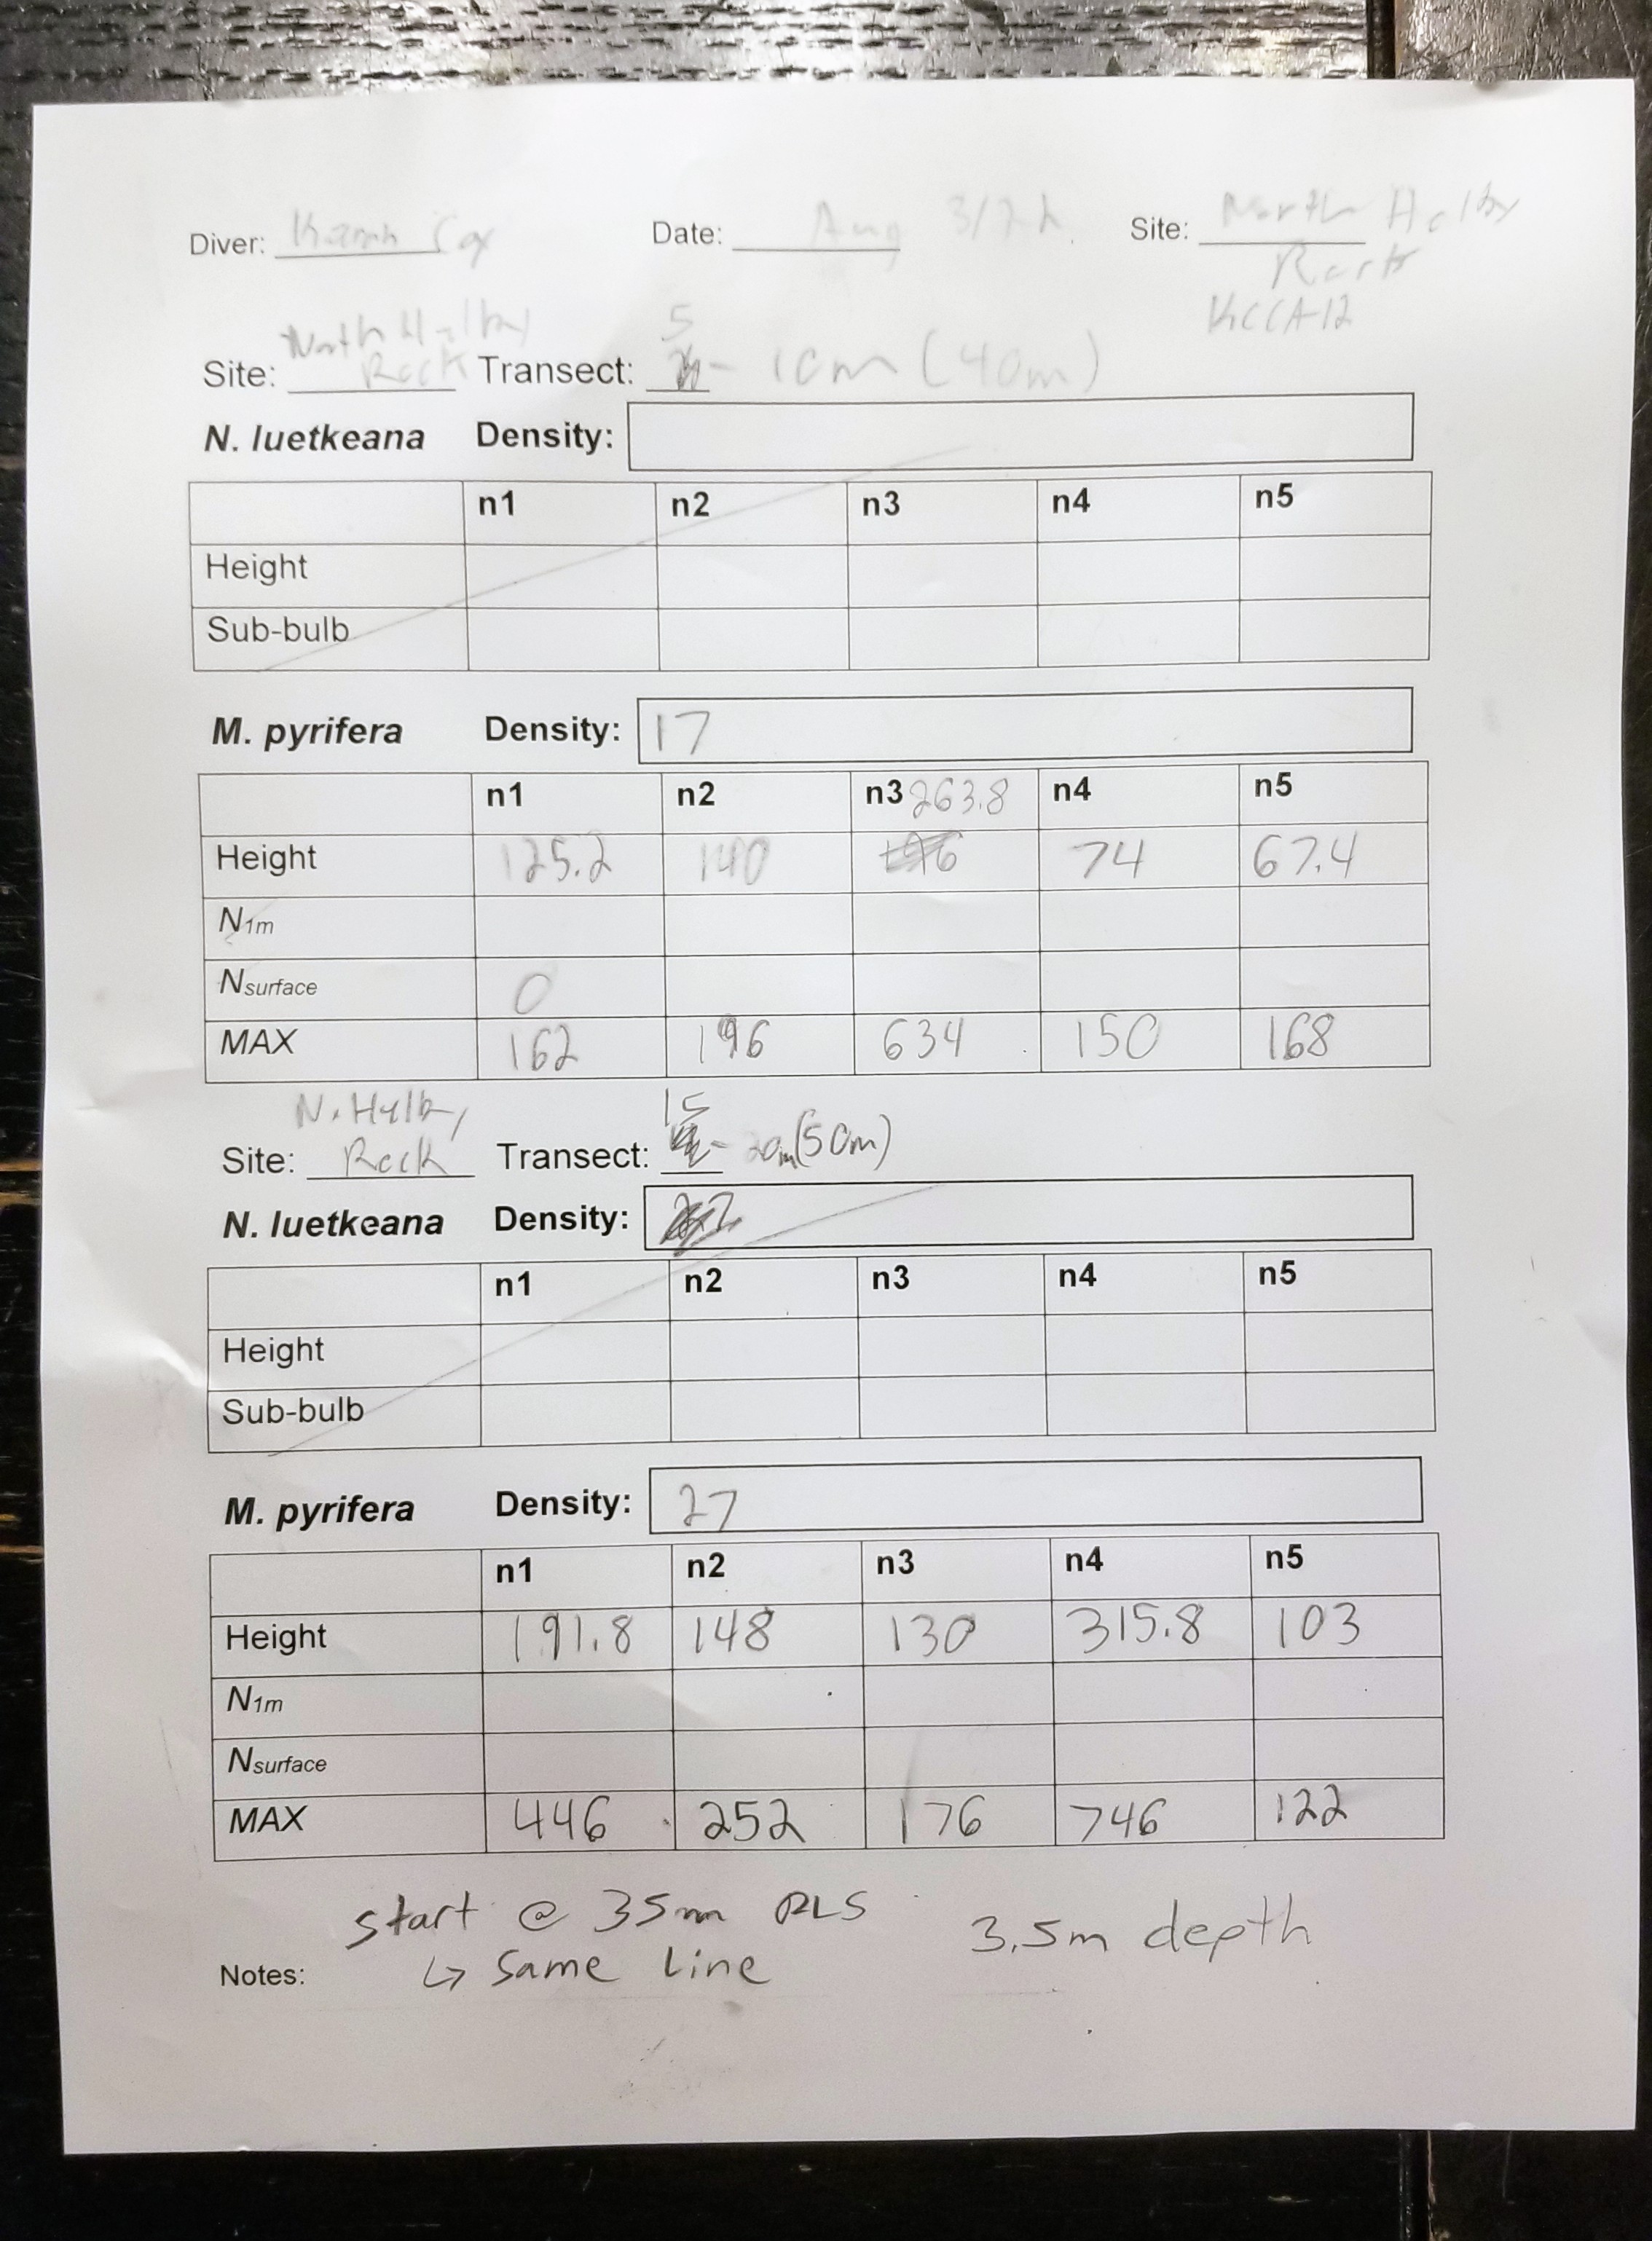 Diver: Date: Aug 3/22 Site: North Helby
Rock
KCCA-12
North Helby
5
Site: Rock Transect: - 10m (40m)
N. luetkeana Density:
n1 n2 n3 n4 n5
Height
Sub-bulb
M. pyrifera Density: 17
n1 n2 n3 263.8 n4 n5
Height 125.2 140 74 67.4
N1m
Nsurface 0
MAX 162 196 634 150 168
N. Helby
15
Site: Rock Transect: - 20m (50m)
N. luetkeana Density:
n1 n2 n3 n4 n5
Height
Sub-bulb
M. pyrifera Density: 27
n1 n2 n3 n4 n5
Height 191.8 148 130 315.8 103
N1m
Nsurface
MAX 446 252 176 746 122
start @ 35m RLS
3.5m depth
Notes: ↳ Same line